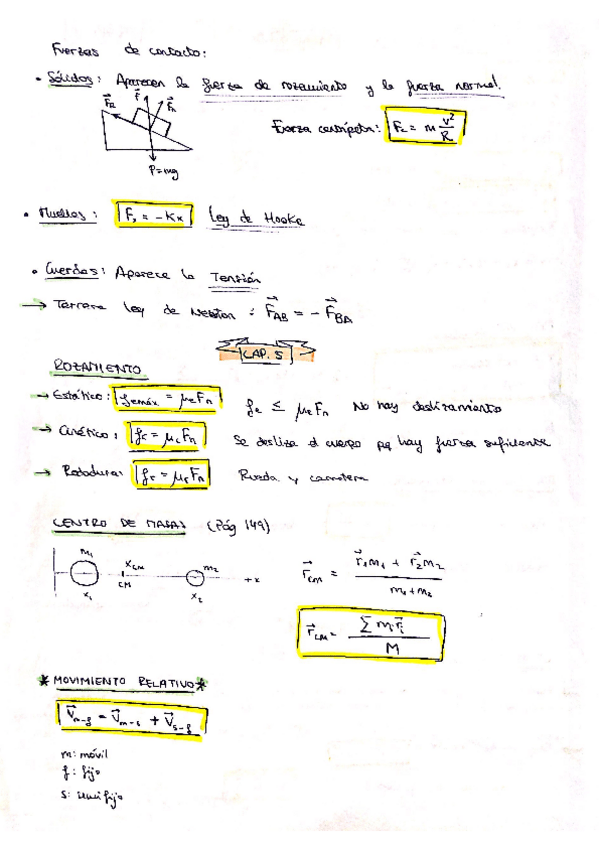 Fuerzas de contacto:
• Sólidos: Aparecen la fuerza de rozamiento y la fuerza normal.
Fuerza centrípeta: Fc = m v²/R
P=mg
• Muelles: Fx = -Kx Ley de Hooke
• Cuerdas: Aparece la Tensión
→ Tercera ley de Newton: F⃗AB = - F⃗BA
CAP. 5
ROZAMIENTO
→ Estático: femáx = μeFn fe ≤ μeFn No hay deslizamiento
→ Cinético: fc = μcFn Se desliza el cuerpo pq hay fuerza suficiente
→ Rodadura: fr = μrFn Rueda y carretera
CENTRO DE MASAS (Pág 149)
m₁ xCM m₂
CM +x
x₁ x₂
r⃗CM = (r⃗₁m₁ + r⃗₂m₂)/(m₁+m₂)
r⃗CM = Σmᵢr⃗ᵢ/M
* MOVIMIENTO RELATIVO *
V⃗m-f = V⃗m-s + V⃗s-f
m: móvil
f: fijo
s: semifijo